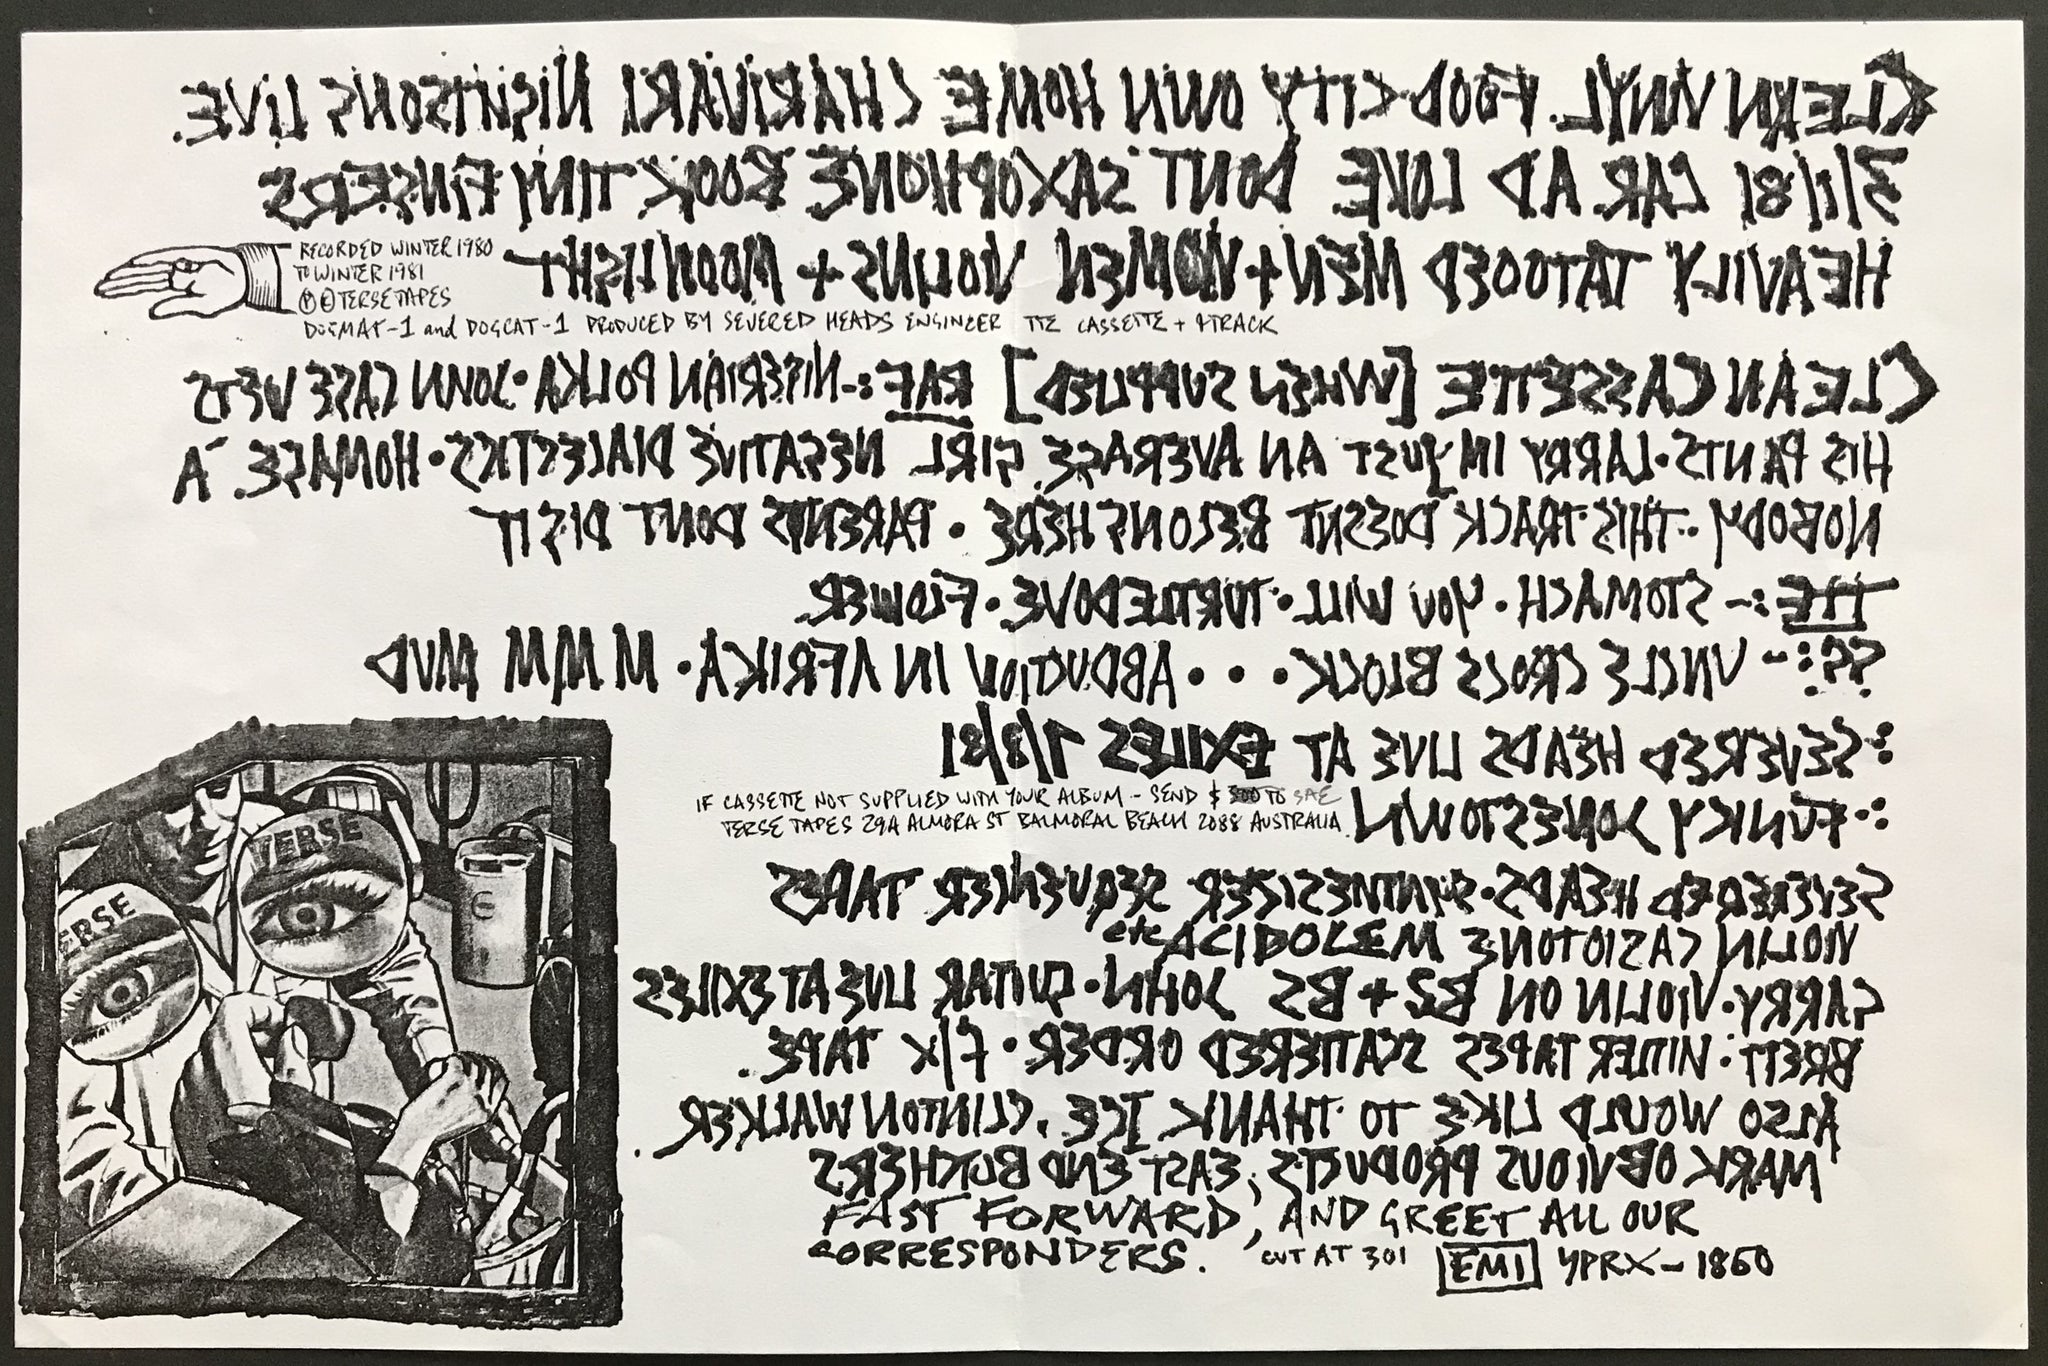 CLEAN VINYL. FOOD CITY OWN HOME CHARIVARI NIGHTSONGS LIVE.
3/1/81 CAR AD LOVE DONT SAXOPHONE BOOK TINY FINGERS
HEAVILY TATOOED MEN + WOMEN VIOLINS + MOONLIGHT
RECORDED WINTER 1980
TO WINTER 1981
Ⓟ © TERSE TAPES
DOGMAT-1 and DOGCAT-1 PRODUCED BY SEVERED HEADS ENGINEER TTE CASSETTE + 4TRACK
CLEAN CASSETTE [WHEN SUPPLIED] RAF:- NIGERIAN POLKA • JOHN CAGE WETS
HIS PANTS • LARRY IM JUST AN AVERAGE GIRL NEGATIVE DIALECTIKS • HOMAGE A
NOBODY • THIS TRACK DOESNT BELONG HERE • PARENTS DONT DIG IT
TTE:- STOMACH • YOU WILL • TURTLEDOVE • FLOWER
??:- UNCLE CROCS BLOCK • • • ABDUCTION IN AFRIKA • M MM MUD
:SEVERED HEADS LIVE AT EXILES 1/8/81
IF CASSETTE NOT SUPPLIED WITH YOUR ALBUM - SEND $ TO SAE
TERSE TAPES 29A ALMORA ST BALMORAL BEACH 2088 AUSTRALIA.
:•FUNKY JONESTOWN
SEVERED HEADS • SYNTHESIZER SEQUENCER TAPES
VIOLIN CASIOTONE ACIDOLEM etc
GARRY • VIOLIN ON B2 + B5 JOHN • GUITAR LIVE AT EXILES
BRETT: NITER TAPES SCATTERED ORDER • F/X TAPE.
ALSO WOULD LIKE TO THANK ICE, CLINTON WALKER.
MARK OBVIOUS PRODUCTS, EAST END BUTCHERS
FAST FORWARD, AND GREET ALL OUR
CORRESPONDERS. CUT AT 301 EMI YPRX-1860
VERSE
ERSE